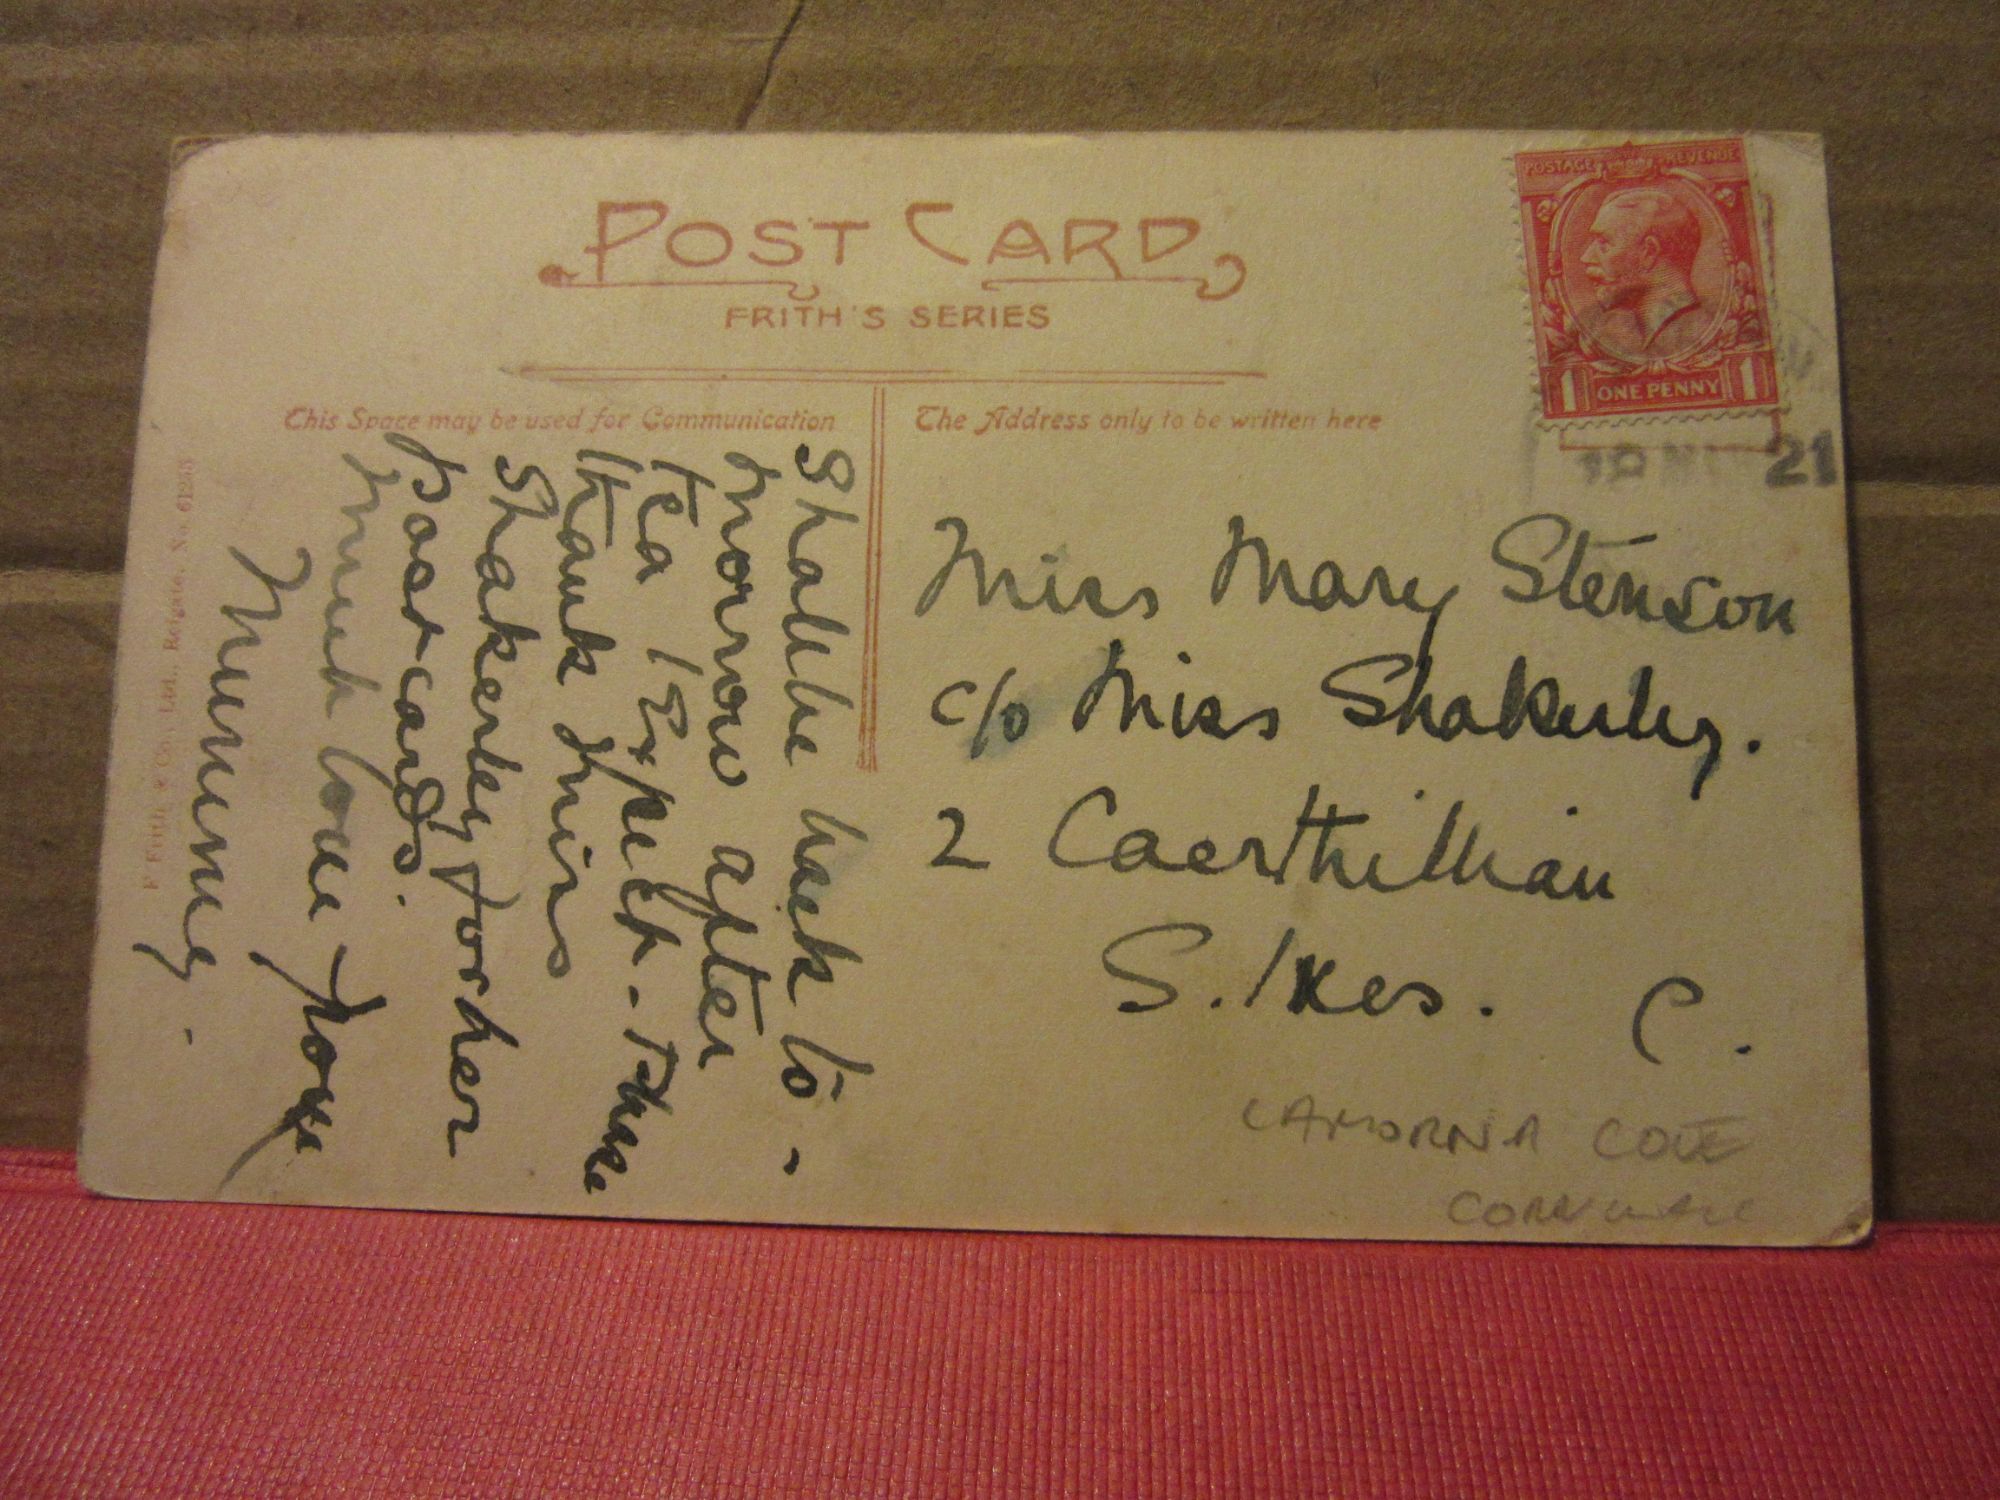 POST CARD
FRITH'S SERIES
This Space may be used for Communication
The Address only to be written here
POSTAGE REVENUE
1 ONE PENNY 1
21
F. Frith & Co., Ltd., Reigate, No. 61283
Shall be back to-
morrow after
Tea I Expect. - Thank
Miss
Shakerley for her
Postcards.
Much love from
Mummy.
Miss Mary Stenson
c/o Miss Shakerley.
2 Caerthillian
S. Ives. C.
LAMORNA COVE
CORNWALL